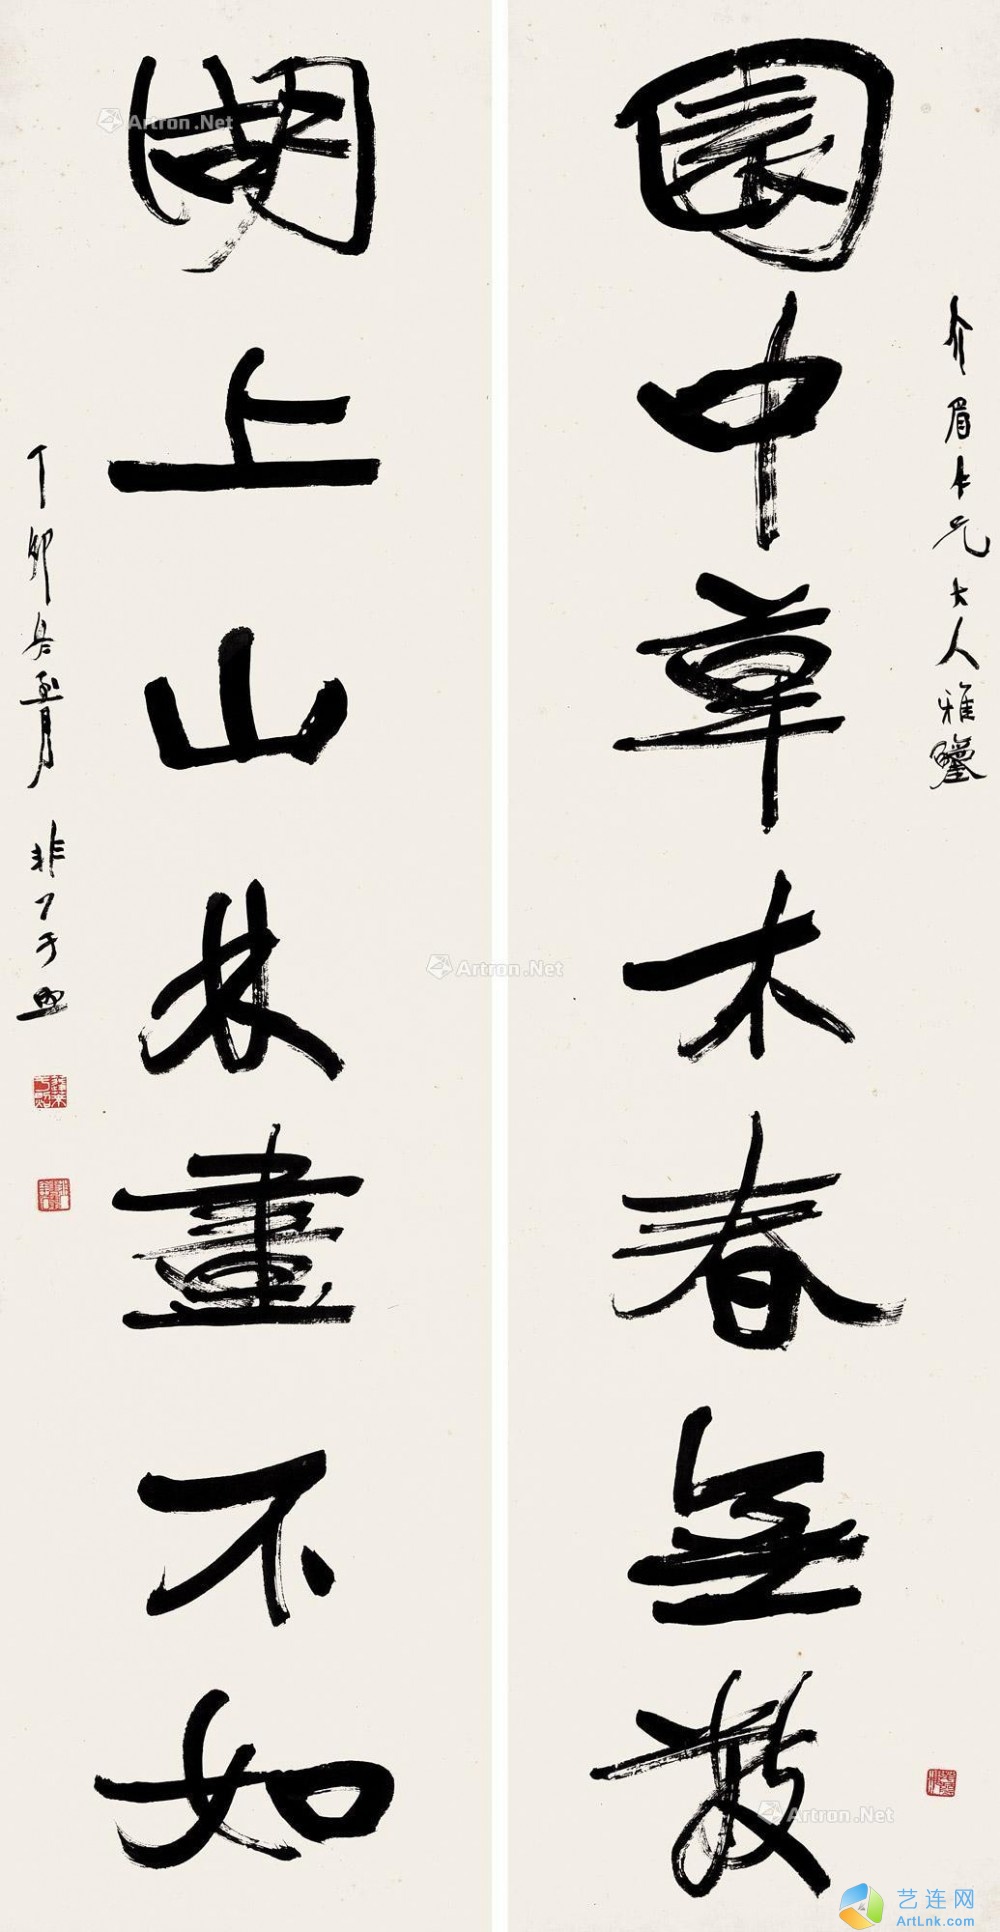 介眉仁兄大人雅鑒
園中草木春無數
湖上山林畫不如
丁卯
Artron.Net
Artron.Net
Artron.Net
艺连网
ArtLnk.com